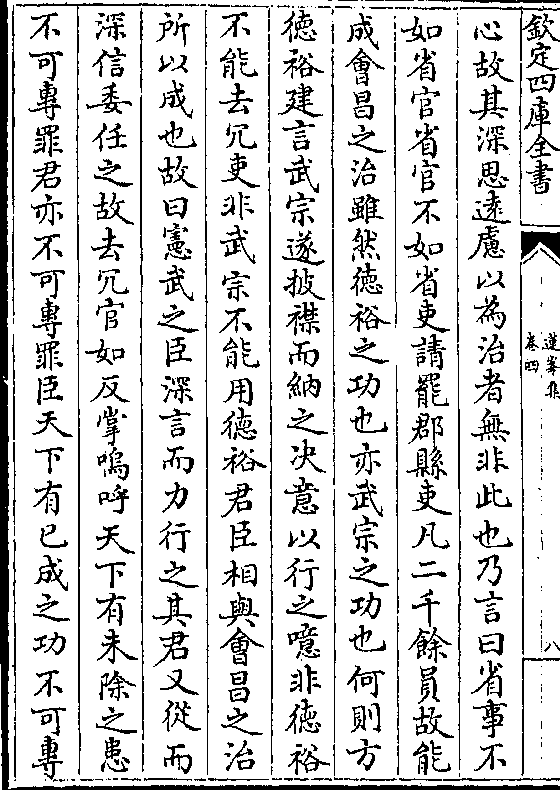 欽定四庫全書
蓮峯集
卷四
八
心故其深思遠慮以為治者無非此也乃言曰省事不
如省官省官不如省吏請罷郡縣吏凡二千餘員故能
成會昌之治雖然德裕之功也亦武宗之功也何則方
德裕建言武宗遂披襟而納之决意以行之噫非德裕
不能去冗吏非武宗不能用德裕君臣相與會昌之治
所以成也故曰憲武之臣深言而力行之其君又從而
深信委任之故去冗官如反掌嗚呼天下有未除之患
不可專罪君亦不可專罪臣天下有已成之功不可專